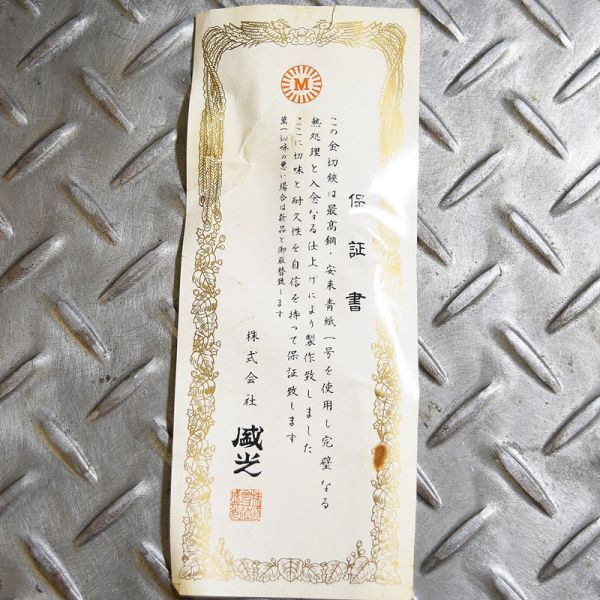 M
保証書
この金切鋏は最高鋼・安来青紙一号を使用し完璧なる
熱処理と入念なる仕上げにより製作致しました
ここに切味と耐久性を自信を持って保証致します
萬一切味の悪い場合は新品と御取替致します
株式会社 盛光